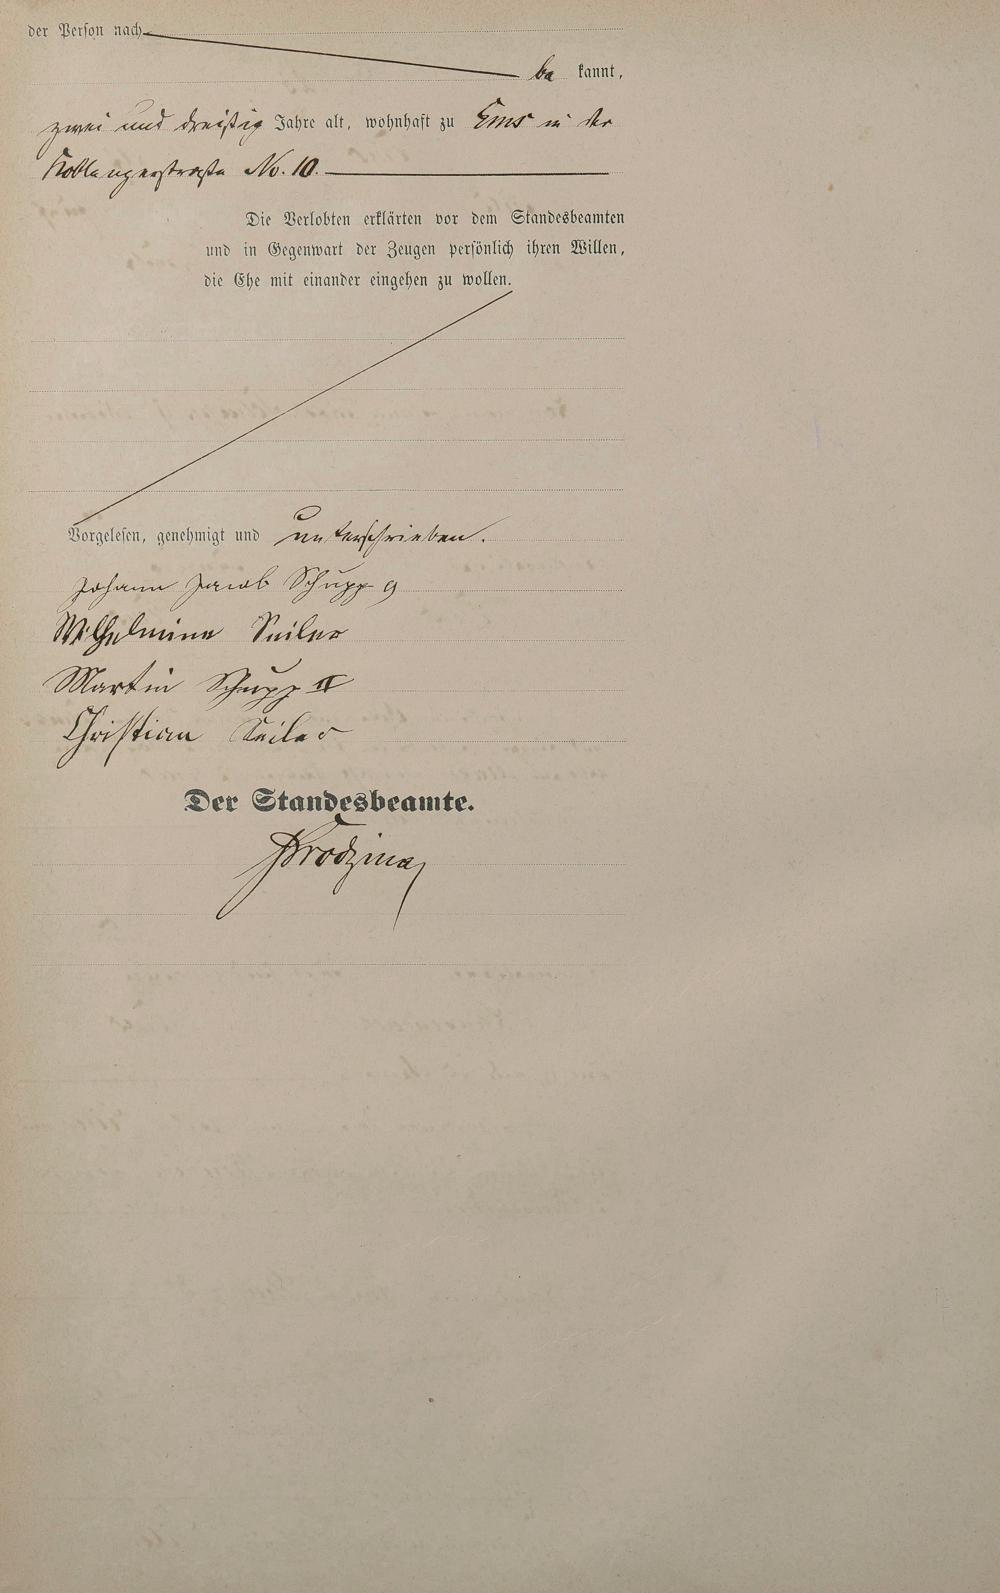 der Person nach
be kannt,
zwei und dreißig Jahre alt, wohnhaft zu Ems in der
Koblenzerstraße No. 10.
Die Verlobten erklärten vor dem Standesbeamten
und in Gegenwart der Zeugen persönlich ihren Willen,
die Ehe mit einander eingehen zu wollen.
Vorgelesen, genehmigt und unterschrieben.
Johann Jacob Schupp 9
Wilhelmine Seiler
Martin Schupp II
Christian Seiler
Der Standesbeamte.